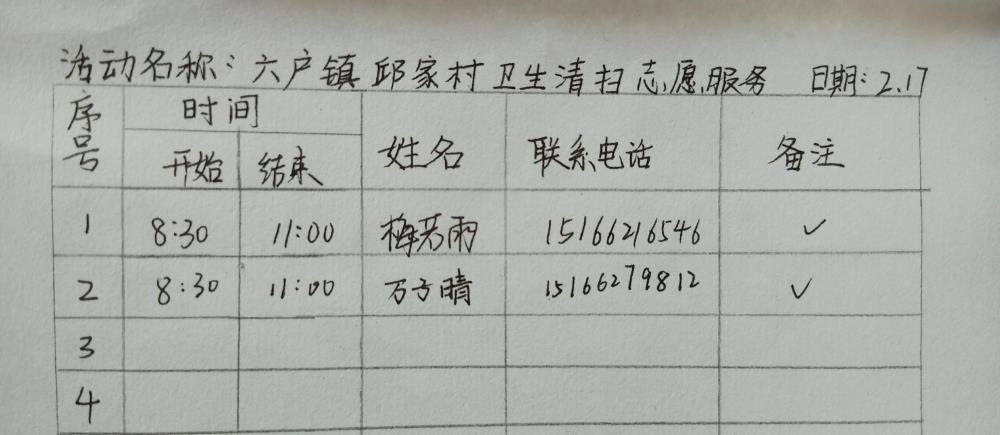 活动名称:六户镇邱家村卫生清扫志愿服务 日期:2.17
序号 时间 姓名 联系电话 备注
开始 结束
1 8:30 11:00 梅若雨 15166216546 ✓
2 8:30 11:00 万方晴 15166279812 ✓
3
4